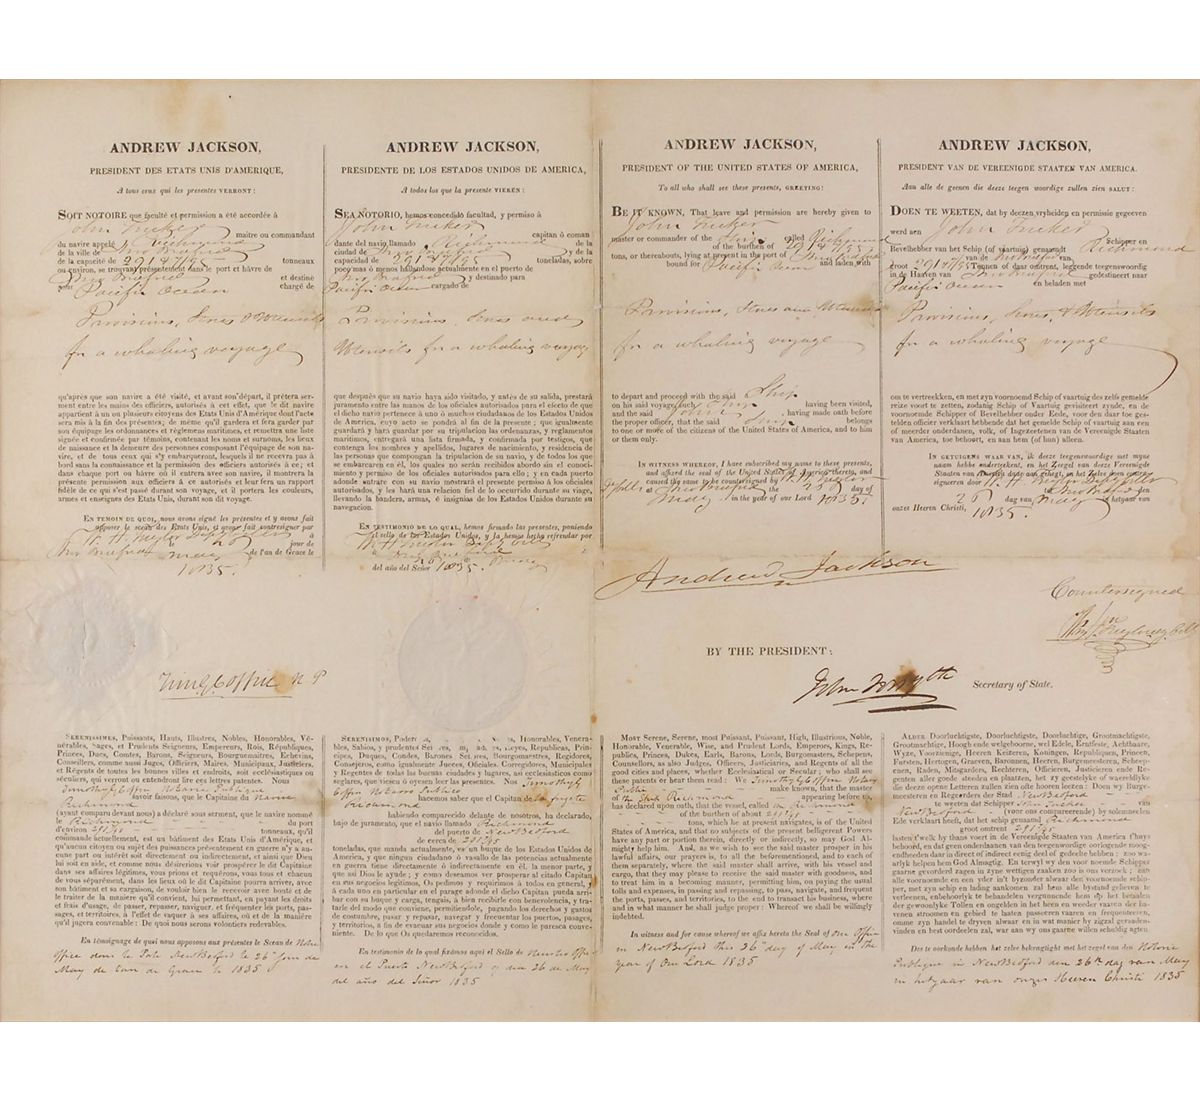 ANDREW JACKSON,
PRESIDENT DES ETATS UNIS D'AMERIQUE,
A tous ceux qui les presentes VERRONT:
SOIT NOTOIRE que faculté et permission a été accordée à
John Tucker maitre ou commandant
du navire appelé Richmond
de la ville de New Bedford
de la capacité de 291 47/95 tonneaux
ou environ, se trouvant présentement dans le port et hâvre de
New Bedford et destiné
pour Pacific Ocean chargé de
Provisions, Stores & Utensils
for a whaling voyage
qu'après que son navire a été visité, et avant son départ, il prêtera ser-
ment entre les mains des officiers, autorisés à cet effet, que le dit navire
appartient à un ou plusieurs citoyens des Etats Unis d'Amérique dont l'acte
sera mis à la fin des présentes; de même qu'il gardera et fera garder par
son équipage les ordonnances et réglemens maritimes, et remettra une liste
signée et confirmée par témoins, contenant les noms et surnoms, les lieux
de naissance et la demeure des personnes composant l'équipage de son na-
vire, et de tous ceux qui s'y embarqueront, lesquels il ne recevra pas à
bord sans la connaissance et la permission des officiers autorisés à ce; et
dans chaque port ou hâvre où il entrera avec son navire, il montrera la
présente permission aux officiers à ce autorisés et leur fera un rapport
fidèle de ce qui s'est passé durant son voyage, et il portera les couleurs,
armes et enseignes des Etats Unis, durant son dit voyage.
EN TEMOIN DE QUOI, nous avons signé les présentes et y avons fait
apposer le sceau des Etats Unis, et avons fait contresigner par
à
New Bedford le 26 jour de
May de l'an de Grace le
1835.
ANDREW JACKSON,
PRESIDENTE DE LOS ESTADOS UNIDOS DE AMERICA,
A todos los que la presente VIERÉN:
SEA NOTORIO, hemos concedido facultad, y permiso á
John Tucker capitan ó coman
dante del navio llamado Richmond de la
ciudad de New Bedford y de la
capacidad de 291 47/95 toneladas, sobre
poco mas ó menos hallandose actualmente en el puerto de
New Bedford y destinado para
Pacific Ocean cargado de
Provisions, Stores and
Utensils for a whaling voyage
que después que su navio haya sido visitado, y antes de su salida, prestará
juramento entre las manos de los oficiales autorizados para el efecto de que
el dicho navio pertenece á uno ó muchos ciudadanos de los Estados Unidos
de America, cuyo acto se pondrá al fin de la presente; que igualmente
guardará y hará guardar por su tripulation las ordenanzas, y reglamentos
maritimos, entregará una lista firmada, y confirmada por testigos, que
contenga los nombres y apellidos, lugares de nacimiento, y residencia de
las personas que compongan la tripulacion de su navio, y de todos los que
se embarcaren en él, los quales no serán recibidos abordo sin el conoci-
miento y permiso de los oficiales autorizados para ello; y en cada puerto
adonde entrare con su navio mostrará el presente permiso á los oficiales
autorizados, y les hará una relacion fiel de lo occurrido durante su viage,
llevando la bandera, armas, é insignias de los Estados Unidos durante su
navegacion.
EN TESTIMONIO DE LO QUAL, hemos firmado las presentes, poniendo
el sello de los Estados Unidos, y la hemos hecho refrendar por
New Bedford
26 May
del año del Señor 1835.
ANDREW JACKSON,
PRESIDENT OF THE UNITED STATES OF AMERICA,
To all who shall see these presents, GREETING:
BE IT KNOWN, That leave and permission are hereby given to
John Tucker
master or commander of the Ship called Richmond
of the burthen of 291 47/95
tons, or thereabouts, lying at present in the port of New Bedford
bound for Pacific Ocean and laden with
Provisions, Stores and Utensils
for a whaling voyage
to depart and proceed with the said Ship
on his said voyage, such Ship having been visited,
and the said John having made oath before
the proper officer, that the said Ship belongs
to one or more of the citizens of the United States of America, and to him
or them only.
IN WITNESS WHEREOF, I have subscribed my name to these presents,
and affixed the seal of the United States of America thereto, and
caused the same to be countersigned by
New Bedford the 26 day of
May in the year of our Lord 1835.
ANDREW JACKSON,
PRESIDENT VAN DE VEREENIGDE STAATEN VAN AMERICA.
Aan alle de geenen die deeze teegen woordige zullen zien SALUT:
DOEN TE WEETEN, dat by deezen vryheiden en permissie gegeeven
werd aen John Tucker Schipper en
Bevelhebber van het Schip (of vaartuig) genaamdt Richmond
van de New Bedford van
groot 291 47/95 Tonnen of daar omtrent, leggende teegenwoordig
in de Haaven van New Bedford gedestineert naar
Pacific Ocean en beladen met
Provisions, Stores, & Utensils
for a whaling voyage
om te vertreekken, en met zyn voornoemd Schip of vaartuyg des zelfs gemelde
reize voort te zetten, zodanig Schip of Vaartuig gevisiteerd zynde, en de
voornoemde Schipper of Bevelhebber onder Eede, voor den daar toe ges-
telden officier verklaart hebbende dat het gemelde Schip of vaartuig aan een
of meerder onderdanen, volk, of Ingezeetenen van de Vereenigde Staaten
van America, toe behoort, en aan hem (of hun) alleen.
IN GETUIGENS WAAR VAN, ik deeze tegenwoordige met myne
naam hebbe onderteekent, en het Zeegel van deeze Vereenigde
Staaten van America daar aan gehegt, en het zelve doen contra
signeren door
New Bedford den
26 dag van May in hetjaar van
onzes Heeren Christi, 1835.
Andrew Jackson
Countersigned
BY THE PRESIDENT:
John Forsyth Secretary of State.
Tim G Coffin N P
SERENISSIMES, Puissants, Hauts, Illustres, Nobles, Honorables, Vé-
nérables, Sages, et Prudents Seigneurs, Empereurs, Rois, Républiques,
Princes, Ducs, Comtes, Barons, Seigneurs, Bourguemaitres, Echevins,
Conseillers, comme aussi Juges, Officiers, Maires, Municipaux, Justiciers,
et Régents de toutes les bonnes villes et endroits, soit ecclésiastiques ou
séculiers, qui verront ou entendront lire ces lettres patentes. Nous
Timothy G Coffin Notaire Publique
savoir faisons, que le Capitaine du Navire
Richmond
(ayant comparu devant nous) a déclaré sous serment, que le navire nommé
le Richmond du port
d'environ 291 47/95 tonneaux, qu'il
commande actuellement, est un bâtiment des Etats Unis d'Amérique, et
qu'aucun citoyen ou sujet des puissances présentement en guerre n'y a au-
cune part ou intérêt soit directement ou indirectement, et ainsi que Dieu
lui soit en aide, et comme nous désirions voir prospérer le dit Capitaine
dans ses affaires légitimes, vous prions et requérons, vous tous et chacun
de vous séparément, dans les lieux où le dit Capitaine pourra arriver, avec
son bâtiment et sa cargaison, de vouloir bien le recevoir avec bonté et de
le traiter de la manière qu'il convient, lui permettant, en payant les droits
et frais d'usage, de passer et repasser, naviguer, et fréquenter les ports, pas-
sages, et territoires, à l'effet de vaquer à ses affaires, où et de la manière
qu'il jugera convenable: De quoi nous serons volontiers redevables.
En témoignage de quoi nous apposons aux présentes le Sceau de Notre
office dans le Port New Bedford le 26 jour de
May de l'an de Grace le 1835
SERENISIMOS, Honorables, Venera-
bles, Sabios, y prudentes Reyes, Republicas, Prin-
cipes, Duques, Condes, Barones Señores, Bourgomaestres, Regidores,
Consejeros, como igualmente Jueces, Oficiales. Corregidores, Municipales
y Regentes de todas las buenas ciudades y lugares, asi ecclesiasticos como
seglares, que viesen ó oyesen leer las presentes. Nos Timothy G
Coffin Notario Publico
hacemos saber que el Capitan de la fragata
Richmond
habiendo comparecido delante de nosotros, ha declarado,
bajo de juramento, que el navio llamado Richmond
del puerto de New Bedford
de cerca de 291 47/95
toneladas, que manda actualmente, es un buque de los Estados Unidos de
America, y que ningun ciudadano ó vasallo de las potencias actualmente
en guerra tiene directamente ó indirectamente en él, la menor parte, y
que asi Dios le ayude; y como deseamos ver prosperar al citado Capitan
en sus negocios legitimos, Os pedimos y requirimos á todos en general, y
á cada uno en particular en los parages adonde el dicho Capitan pueda arri-
bar con su buque y carga, tengais, á bien recibirle con benevolencia, y tra-
tarle del modo que conviene, permitiendole, pagando los derechos y gastos
de costumbre, pasar y repasar, navegar y frecuentar los puertos, pasages,
y territorios, a fin de evacuar sus negocios donde y como le paresca conve-
niente. De lo que Os quedaremos reconocidos.
En testimonio de lo qual fixámos aqui el Sello de nuestro Office
en el Puerto New Bedford 26 de May
del año del Señor 1835
MOST SERENE, SERENE, MOST PUISSANT, Puissant, High, Illustrious, Noble,
Honorable, Venerable, Wise, and Prudent Lords, Emperors, Kings, Re-
publics, Princes, Dukes, Earls, Barons, Lords, Burgomasters, Schepens,
Counsellors, as also Judges, Officers, Justiciaries, and Regents of all the
good cities and places, whether Ecclesiastical or Secular; who shall see
these patents or hear them read: We Timothy G Coffin Notary
Public make known, that the master
of the Ship Richmond appearing before us,
has declared upon oath, that the vessel, called the Richmond
of the burthen of about 291 47/95
tons, which he at present navigates, is of the United
States of America, and that no subjects of the present belligerent Powers
have any part or portion therein, directly or indirectly, so may God Al-
mighty help him. And, as we wish to see the said master prosper in his
lawful affairs, our prayers is, to all the beforementioned, and to each of
them separately, where the said master shall arrive, with his vessel and
cargo, that they may please to receive the said master with goodness, and
to treat him in a becoming manner, permitting him, on paying the usual
tolls and expenses, in passing and repassing, to pass, navigate, and frequent
the ports, passes, and territories, to the end to transact his business, where
and in what manner he shall judge proper: Whereof we shall be willingly
indebted.
In witness and for cause whereof we affix hereto the Seal of our Office
in New Bedford this 26th day of May in the
year of Our Lord 1835
ALDER Doorluchtigste, Doorluchtigste, Doorluchtige, Grootmachtigste,
Grootmachtige, Hoogh ende welgeboorne, wel Edele, Erntfeste, Achtbaare,
Wyze, Voorzienige, Heeren Keiferen, Koningen, Republiquen, Princen,
Fursten, Hertogen, Graeven, Baronnen, Heeren, Burgemeesteren, Scheep-
enen, Raden, Mitsgarders, Rechteren, Officieren, Justicieren ende Re-
genten aller goede steeden en plaatsen, het zy geestelyke of waereldlyke
die deeze opene Letteren zullen zien ofte hooren leezen: Doen wy Burge-
meesteren en Regeerders der Stad New Bedford
te weeten dat Schipper John Tucker van
New Bedford (voor ons compareerende) by solemneelen
Ede verklaart heeft, dat het schip genaamd Richmond
groot omtrent 291 47/95
lasten t'welk hy thans voert in de Vereenigde Staaten van America t'huys
behoord, en dat geen onderdaanen van den teegenwoordige oorlogende moog-
endheeden daar in direct of indirect eenig deel of gedeelte hebben; zoo wa-
arlyk helpen hem God Almagtig. En terwyl wy den voor noemde Schipper
gaarne gevorderd zagen in zyne wettigen zaaken zoo is ons verzoek; aan
alle voornoemde en een yder in't byzonder alwaar den voornoemde schip-
per, met zyn schip en lading aankomen zal hem alle bystand gelieven te
verleenen, onbehoorlyk te behandelen vergunnende hem op het betalen
der gewoonlyke Tollen en ongelden in het heen en weeder vaaren der ha-
venen stroomen en gebied te laaten passeeren vaaren en frequenteeren,
omme zyn handel te dryven alwaar en in wat manier hy zigtal geraaden-
vinden en best oordeelen zal, war aan wy ons gaarne willen schuldig agten.
Des te oorkonde hebben het zelve bekragtight met het zegel van den Notarie
Publique in New Bedford den 26th dag van May
in het jaar van onzes Heeren Christi 1835